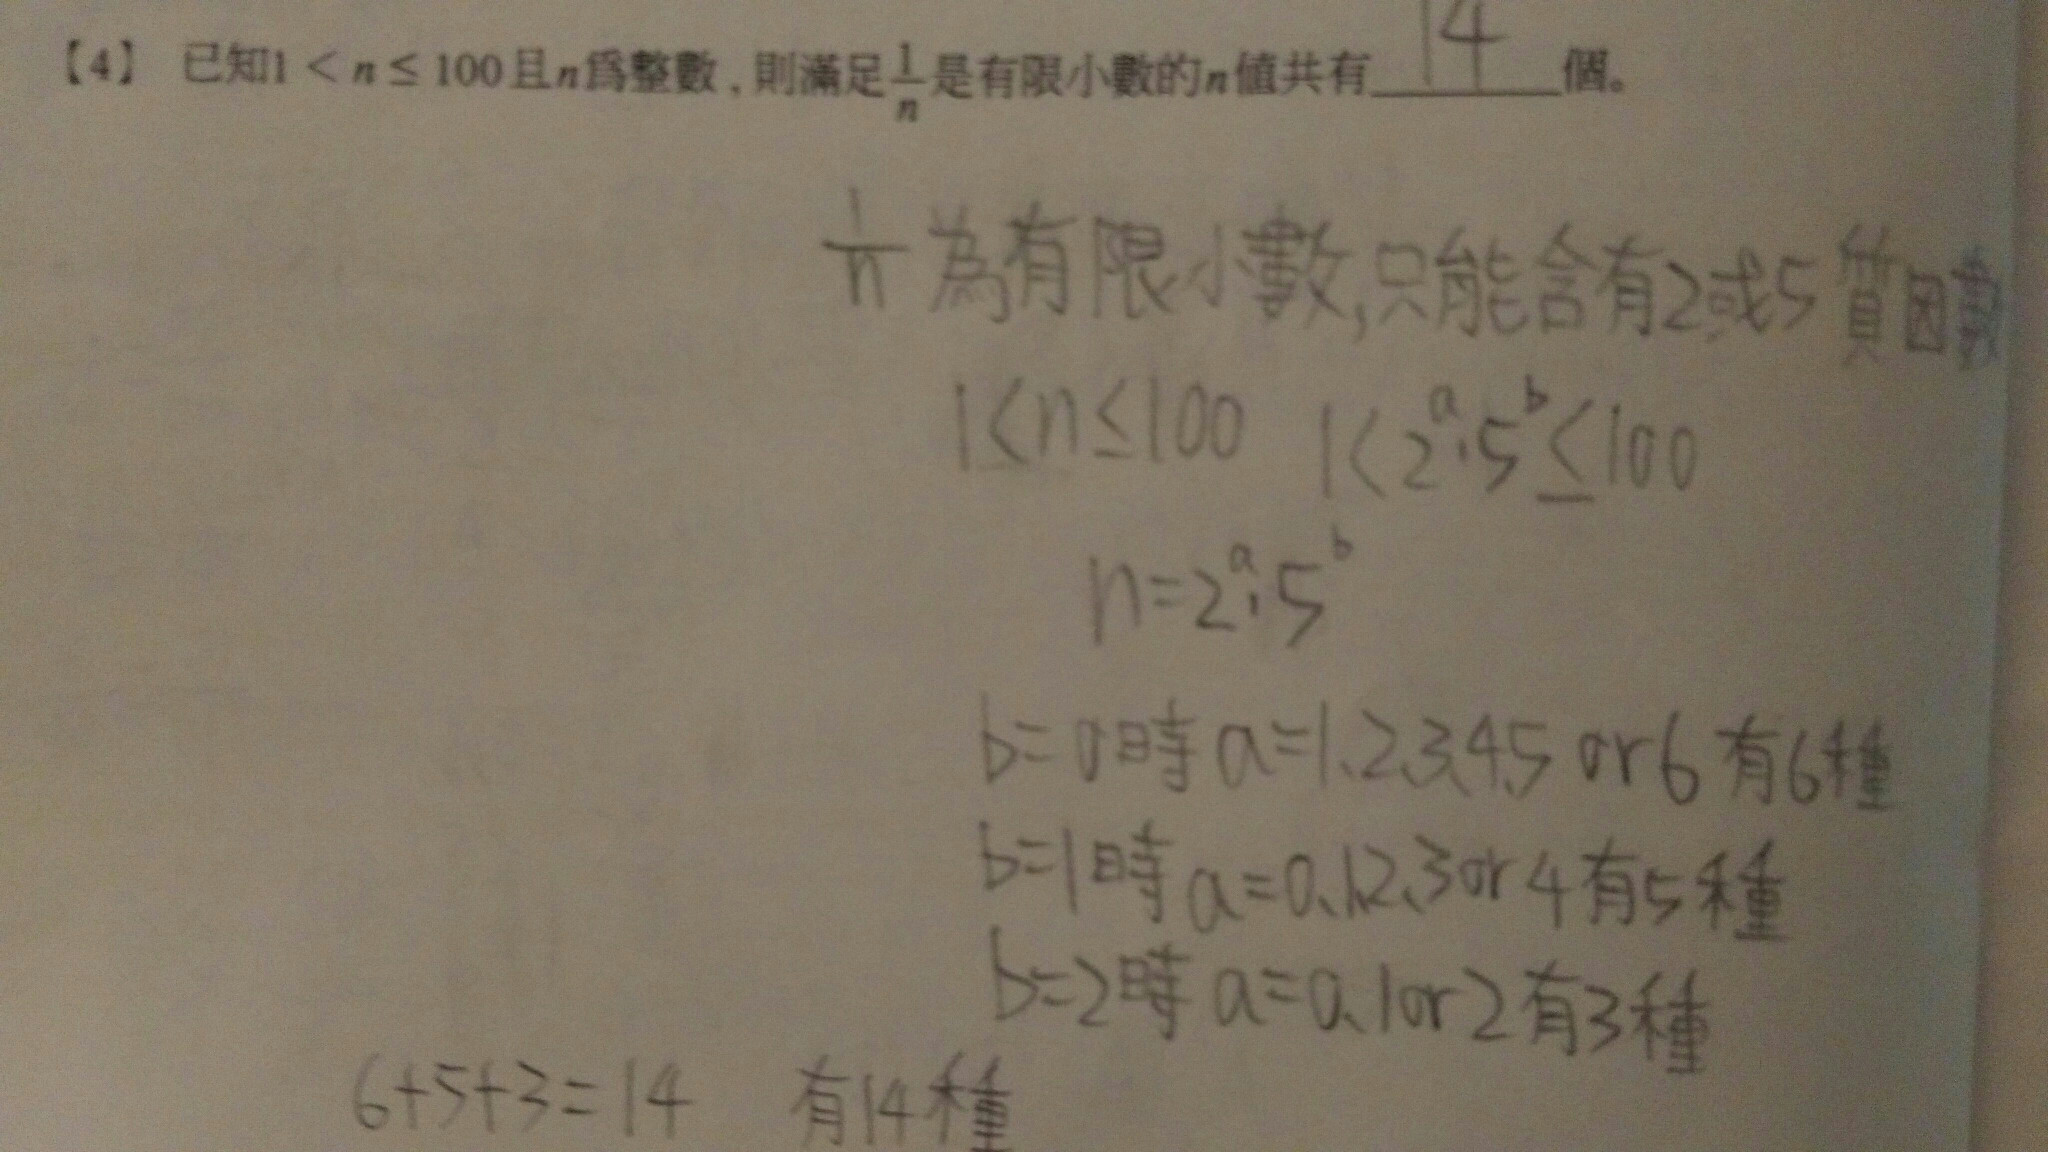 【4】 已知1 < n ≤ 100且n為整數，則滿足1/n是有限小數的n值共有 14 個。
1/n 為有限小數,只能含有2或5質因數
1<n≤100 1<2^a·5^b≤100
n=2^a·5^b
b=0時a=1、2、3、4、5 or 6 有6種
b=1時a=0、1、2、3 or 4 有5種
b=2時a=0、1 or 2 有3種
6+5+3=14 有14種